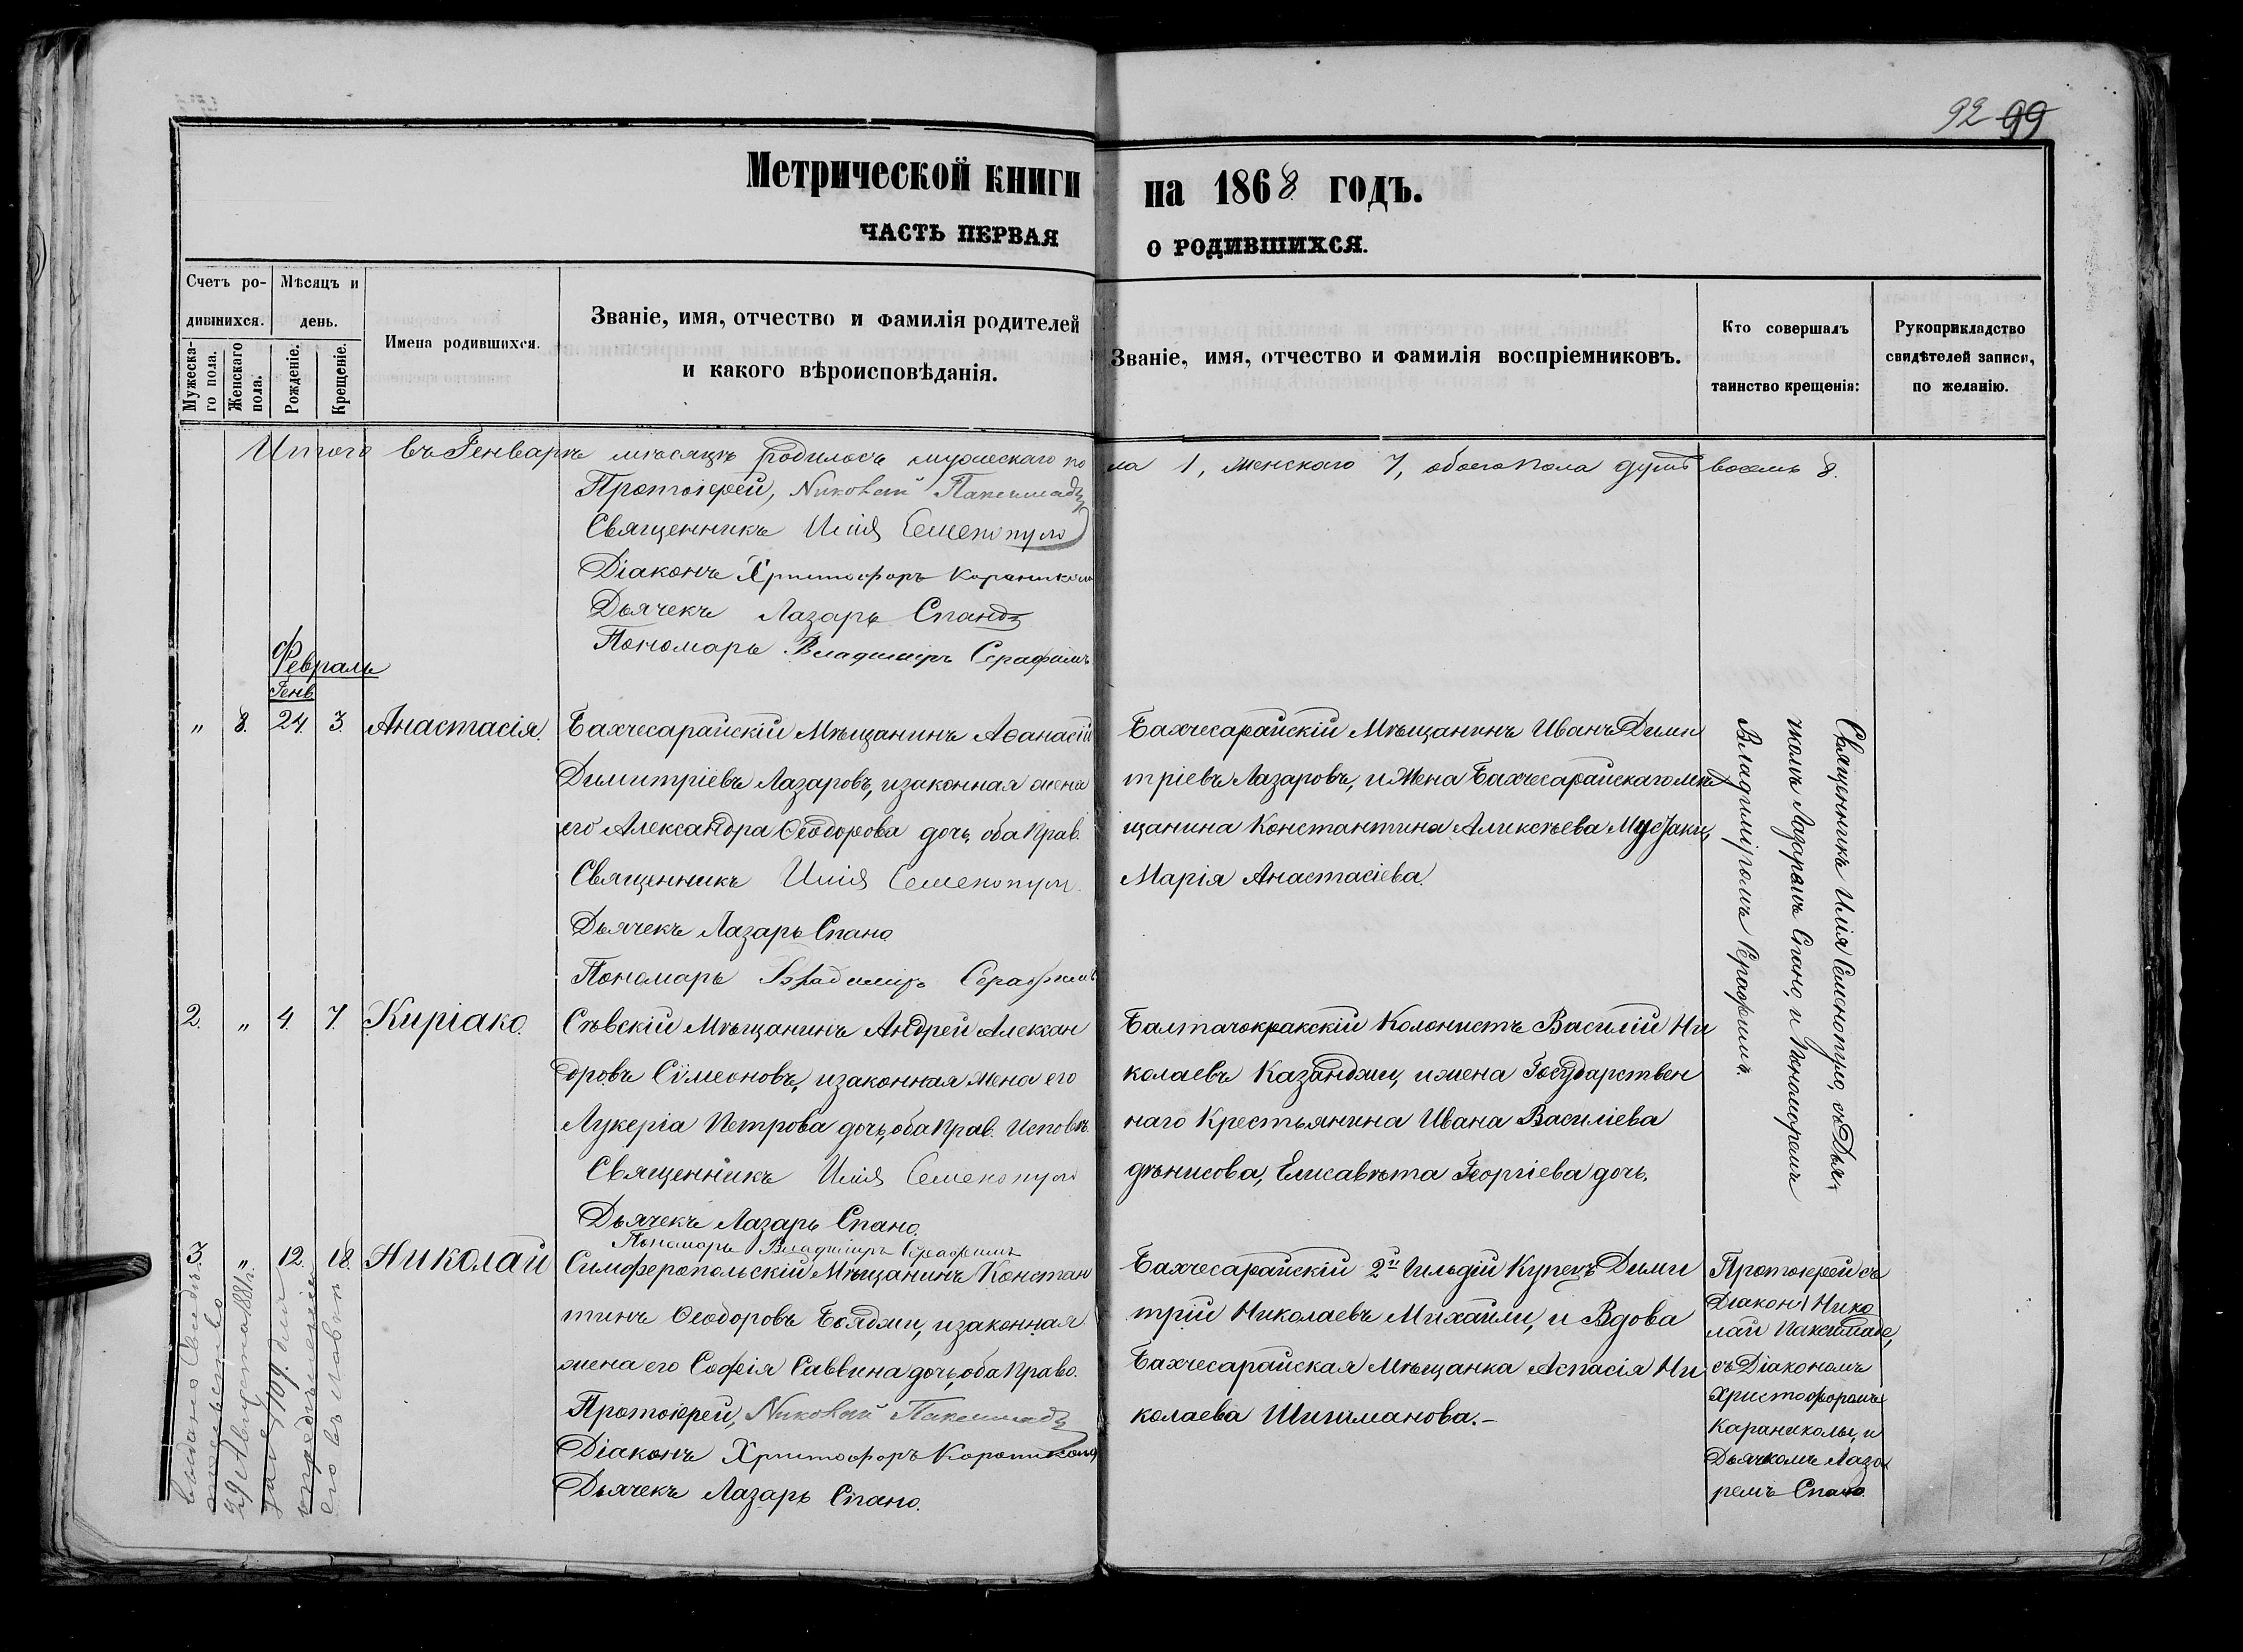 92 99
Метрической книги на 1868 годъ.
ЧАСТЬ ПЕРВАЯ О РОДИВШИХСЯ.
Счетъ родившихся.
Мужеска-го пола.
Женскаго пола.
Мѣсяцъ и день.
Рожденіе.
Крещеніе.
Имена родившихся.
Званіе, имя, отчество и фамилія родителей
и какого вѣроисповѣданія.
Званіе, имя, отчество и фамилія воспріемниковъ.
Кто совершалъ
таинство крещенія:
Рукоприкладство
свидѣтелей записи,
по желанію.
Итого въ Генварѣ мѣсяцѣ родилось мужескаго пола 1, женскаго 7, обоего пола душъ восемь 8.
Протоіерей, Николай
Священникъ Илія Семенопуло
Діаконъ Христофоръ Караникола
Дьячекъ Лазарь Спандо
Пономарь Владимиръ Серафимъ
Февраль
Генв
" 8. 24. 3. Анастасія.
Бахчесарайскій Мѣщанинъ Аѳанасій
Димитріевъ Лазаровъ, и законная жена
его Александра Ѳеодорова дочь, оба Прав.
Священникъ Илія Семенопуло
Дьячекъ Лазарь Спано
Пономарь Владимиръ Серафимъ
Бахчесарайскій Мѣщанинъ Иванъ Дими
тріевъ Лазаровъ, и Жена Бахчесарайскаго мѣ
щанина Константина Аликсѣева
Марія Анастасіева.
Священникъ Илія Семенопуло, съ Дья
чкомъ Лазаремъ Спано, и Пономаремъ
Владиміромъ Серафимъ.
2. " 4. 7. Киріако.
Сѣвскій Мѣщанинъ Андрей Алексан
дровъ Сімеоновъ, и законная жена его
Лукеріа Петрова дочь, оба Прав. Исповѣ.
Священникъ Илія Семенопуло
Дьячекъ Лазарь Спано.
Пономарь Владиміръ Серафимъ
Балтачокракскій Колонистъ Василій Ни
колаевъ Казанджи, и жена Государствен
наго Крестьянина Ивана Василіева
дѣнисова, Елисавѣта Георгіева дочь.
3. " 12. 18. Николай
Симферопольскій Мѣщанинъ Констан
тинъ Ѳеодоровъ Бояджи, и законная
жена его Софія Саввина дочь, оба Право.
Протоіерей, Николай
Діаконъ Христофоръ Караникола
Дьячекъ Лазарь Спано.
Бахчесарайскій 2й Гильдіи Купецъ Дими
трій Николаевъ Михаили, и Вдова
Бахчесарайская Мѣщанка Аспасія Ни
колаева Шишманова.-
Протоіерей съ
Діакон Нико
лай
съ Діакономъ
Христофоромъ
Караниколы, и
Дьячкомъ Лаза
ремъ Спано.
выдано
29 Августа 1881 г.
за № 1109. для
опредѣленія
его въ